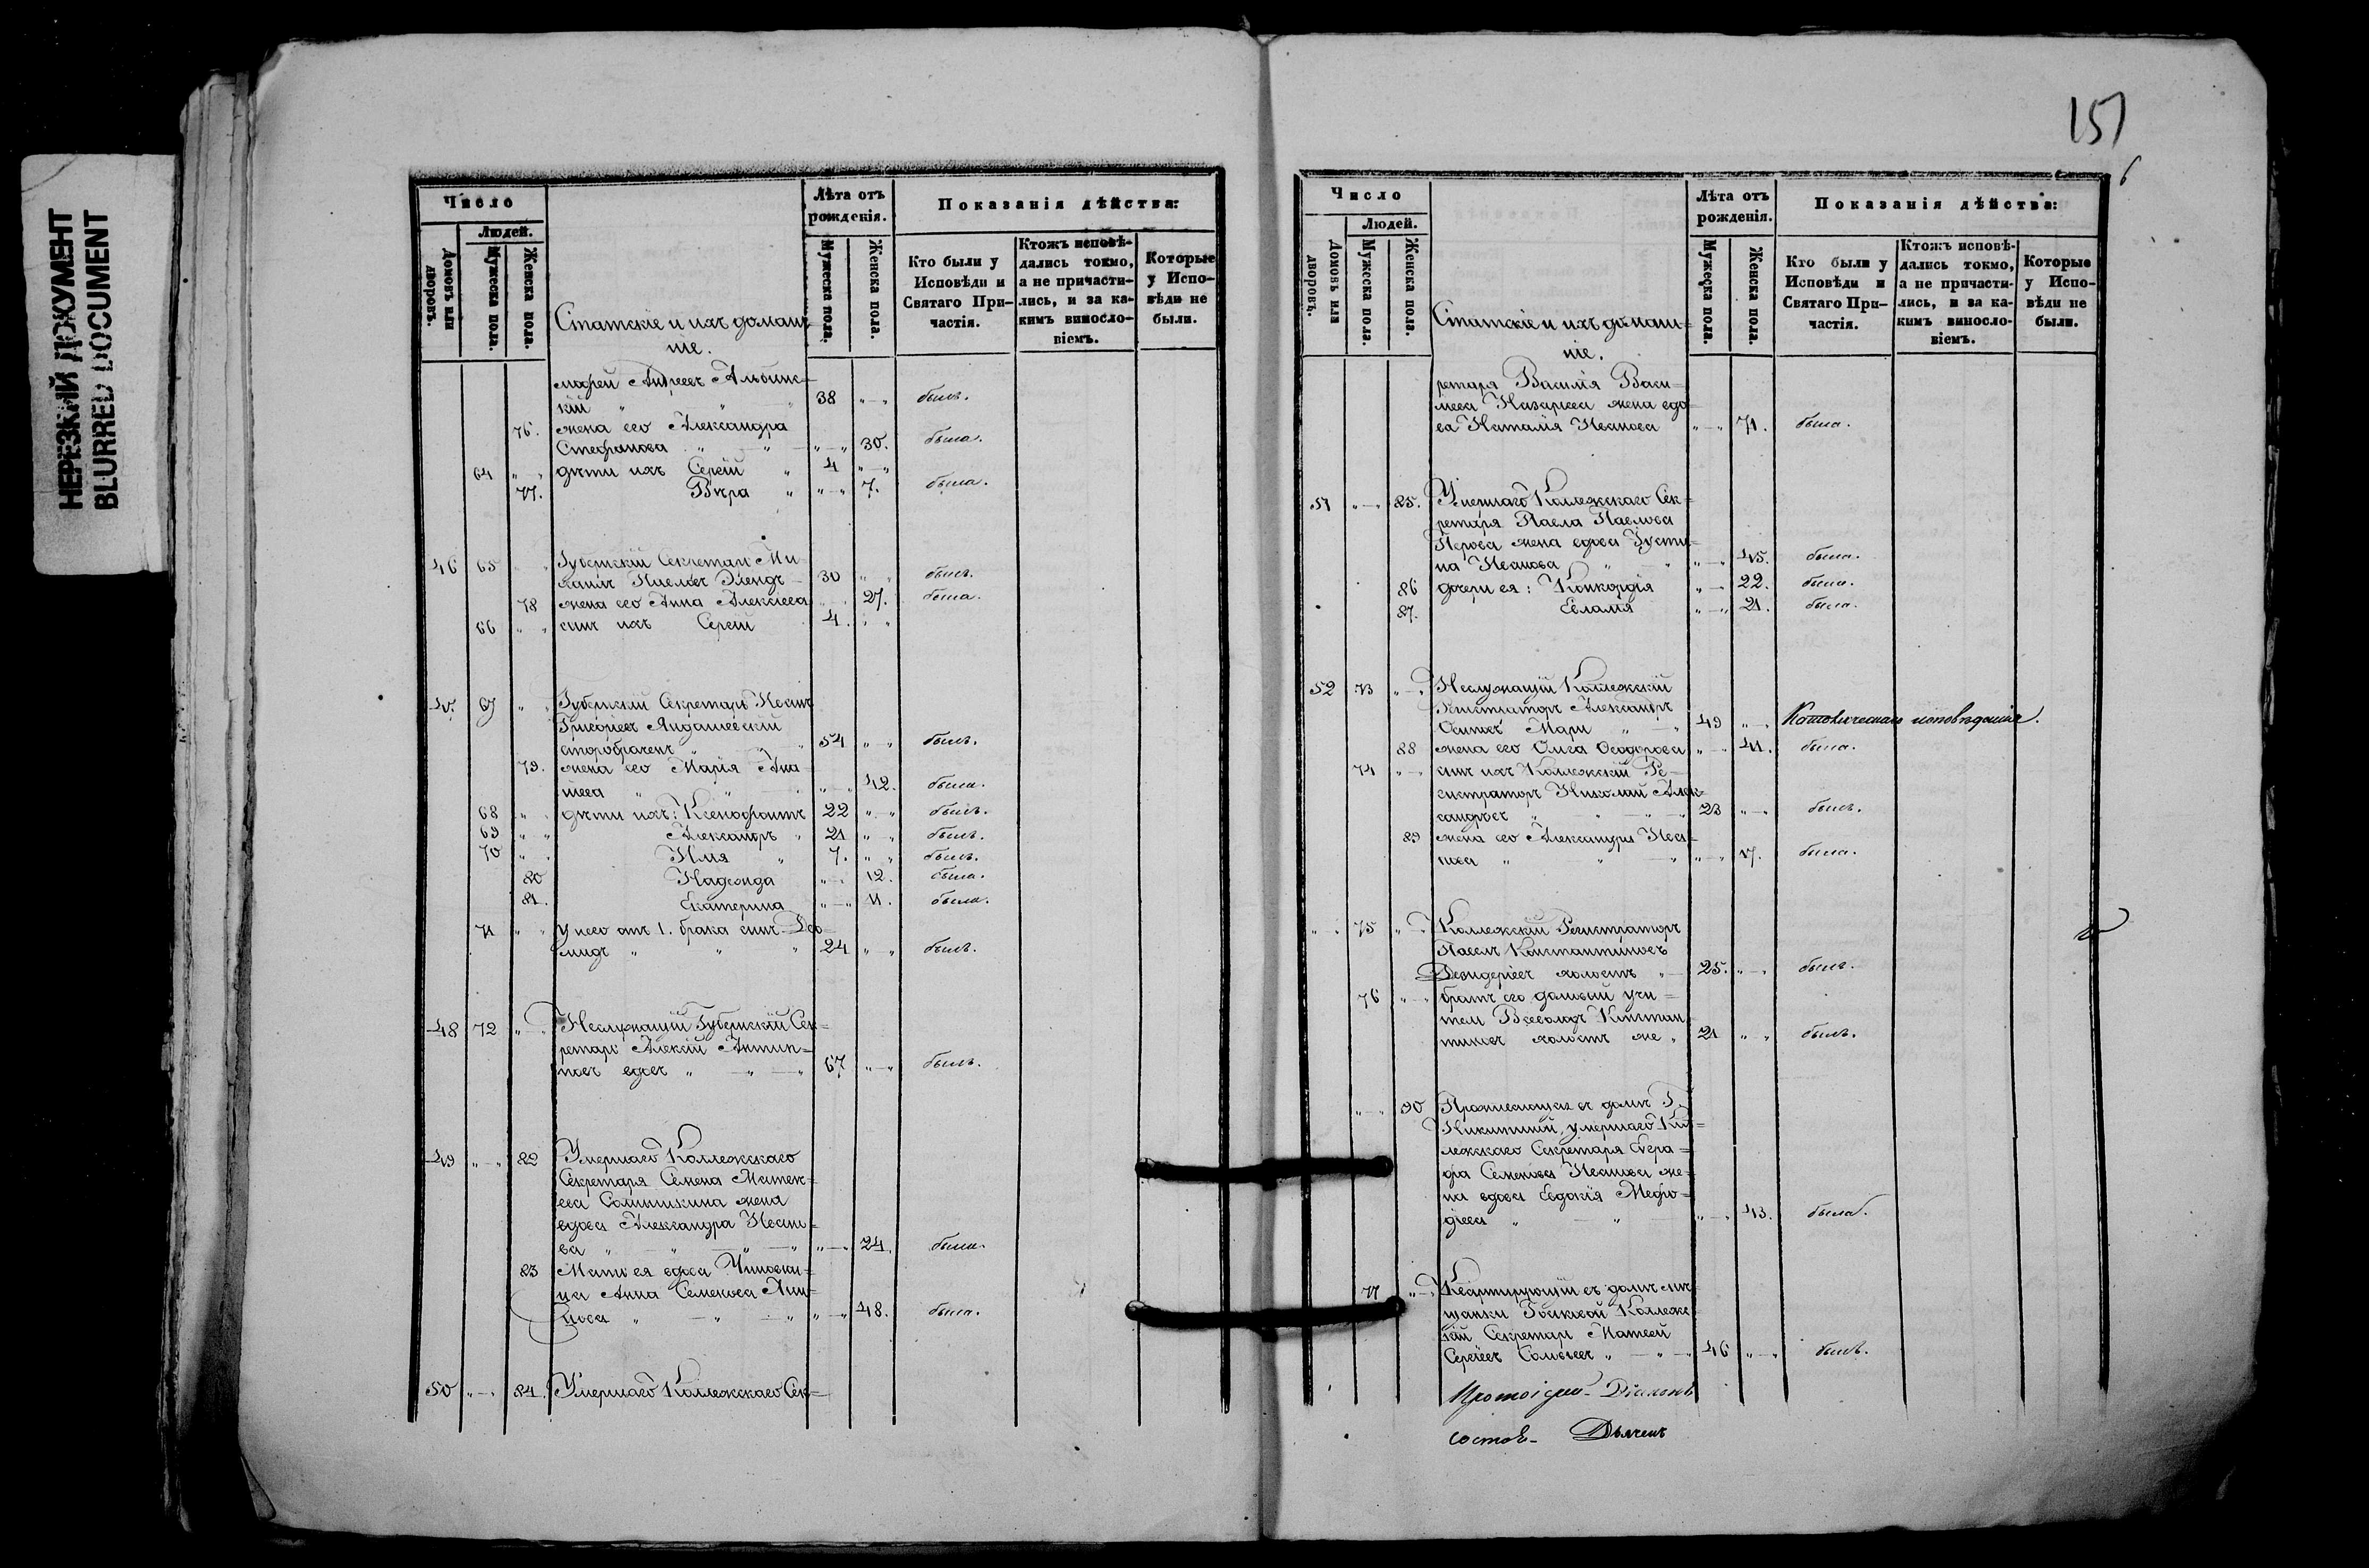 НЕРЕЗКИЙ ДОКУМЕНТ
BLURRED DOCUMENT
Число
Людей.
Домовъ или дворовъ.
Мужеска пола.
Женска пола.
Статскіе и ихъ домаш-
ніе.
Лѣта отъ рожденія.
Мужеска пола.
Женска пола.
Показанія дѣйства:
Кто были у Исповѣди и Святаго При-частія.
Ктожъ исповѣ-дались токмо, а не причасти-лись, и за ка-кимъ винос­ло-віемъ.
Которые у Испо-вѣди не были.
Андреевъ Альбинс-
кій " " 38 "—" былъ.
76. жена его Александра
Стефанова " — " "—" 30. была.
64 " " дѣти ихъ Сергій " 4 "—"
77. Вѣра " "—" 7. была.
46 65 " Губернскій Секретарь Ми-
хаилъ 30 " " былъ.
78 жена его Анна Алексіева 27. была.
66 " " сынъ ихъ Сергій 4. " "
47. 67 " " Губернскій Секретарь Іоаннъ
Григорьевъ
второбраченъ " " 54 "—" былъ.
79. жена его Марія
" " "—" 42. была.
68 " " дѣти ихъ: Ксенофонтъ 22 "—" былъ.
69 " " Александръ " 21 " " былъ.
70 " " Илія " 7. " " былъ.
80 Надежда "—" 12. была.
81. Екатерина "—" 11. была.
71 " " у него отъ 1. брака сынъ Лео-
нидъ " " " 24 "—" былъ.
48 72 "—" Неслужащій Губернскій Сек-
ретарь Алексій Антип-
повъ вдовъ " — " 67 "—" былъ.
49 "—" 82 Умершаго Коллежскаго
Секретаря Семена Матвѣ-
ева жена
вдова Александра Ивано-
ва " " — " "—" 24. была.
83 Мать ея вдова Чиновни-
ца Анна Семенова
" — " "—" 48. была.
50 "—" 84. Умершаго Коллежскаго Сек-
151
6
Число
Людей.
Домовъ или дворовъ.
Мужеска пола.
Женска пола.
Статскіе и ихъ домаш-
ніе.
Лѣта отъ рожденія.
Мужеска пола.
Женска пола.
Показанія дѣйства:
Кто были у Исповѣди и Святаго При-частія.
Ктожъ исповѣ-дались токмо, а не причасти-лись, и за ка-кимъ винос­ло-віемъ.
Которые у Испо-вѣди не были.
ретаря Василія Васи-
льева Назарьева жена вдо-
ва Наталія Иванова "—" 71. была.
51 "—" 85. Умершаго Коллежскаго Сек-
ретаря Павла Павлова
Перова жена вдова Іусти-
на Иванова " " "—" 45. была.
86 дочери ея: Конкордія "—" 22. была.
87. Евлалія "—" 21. была.
52 73 "—" Неслужащій Коллежскій
Регистраторъ Александръ
Осиповъ " — " 49 "—" Католическаго исповѣданія.
88 жена его Ольга Ѳеодорова "—" 41. была.
74 "—" сынъ ихъ Коллежскій Ре-
гистраторъ Николай Алек-
сандровъ " " — " 23 "—" былъ.
89 жена его Александра Ива-
нова " " " "—" 17. была.
"—" 75 "—" Коллежскій Регистраторъ
Павелъ Константиновъ
Дезидеріевъ холостъ " — 25. "—" былъ.
76 "—" братъ его домовый учи-
тель Всеволодъ Констан-
тиновъ холостъ же " 21 "—" былъ.
"—" 90 Проживающая въ домѣ Г.
Никитиной, умершаго Кол-
лежскаго Секретаря Евгра-
фа Семенова Иванова же-
на вдова Евдокія Меѳо-
діева " " "—" 43. была.
77 "—" Квартирующій въ домѣ мѣ-
щанки Коллежс-
кій Секретарь Матвей
Сергѣевъ Соловьевъ " — " 46 "—" былъ.
Діаконъ